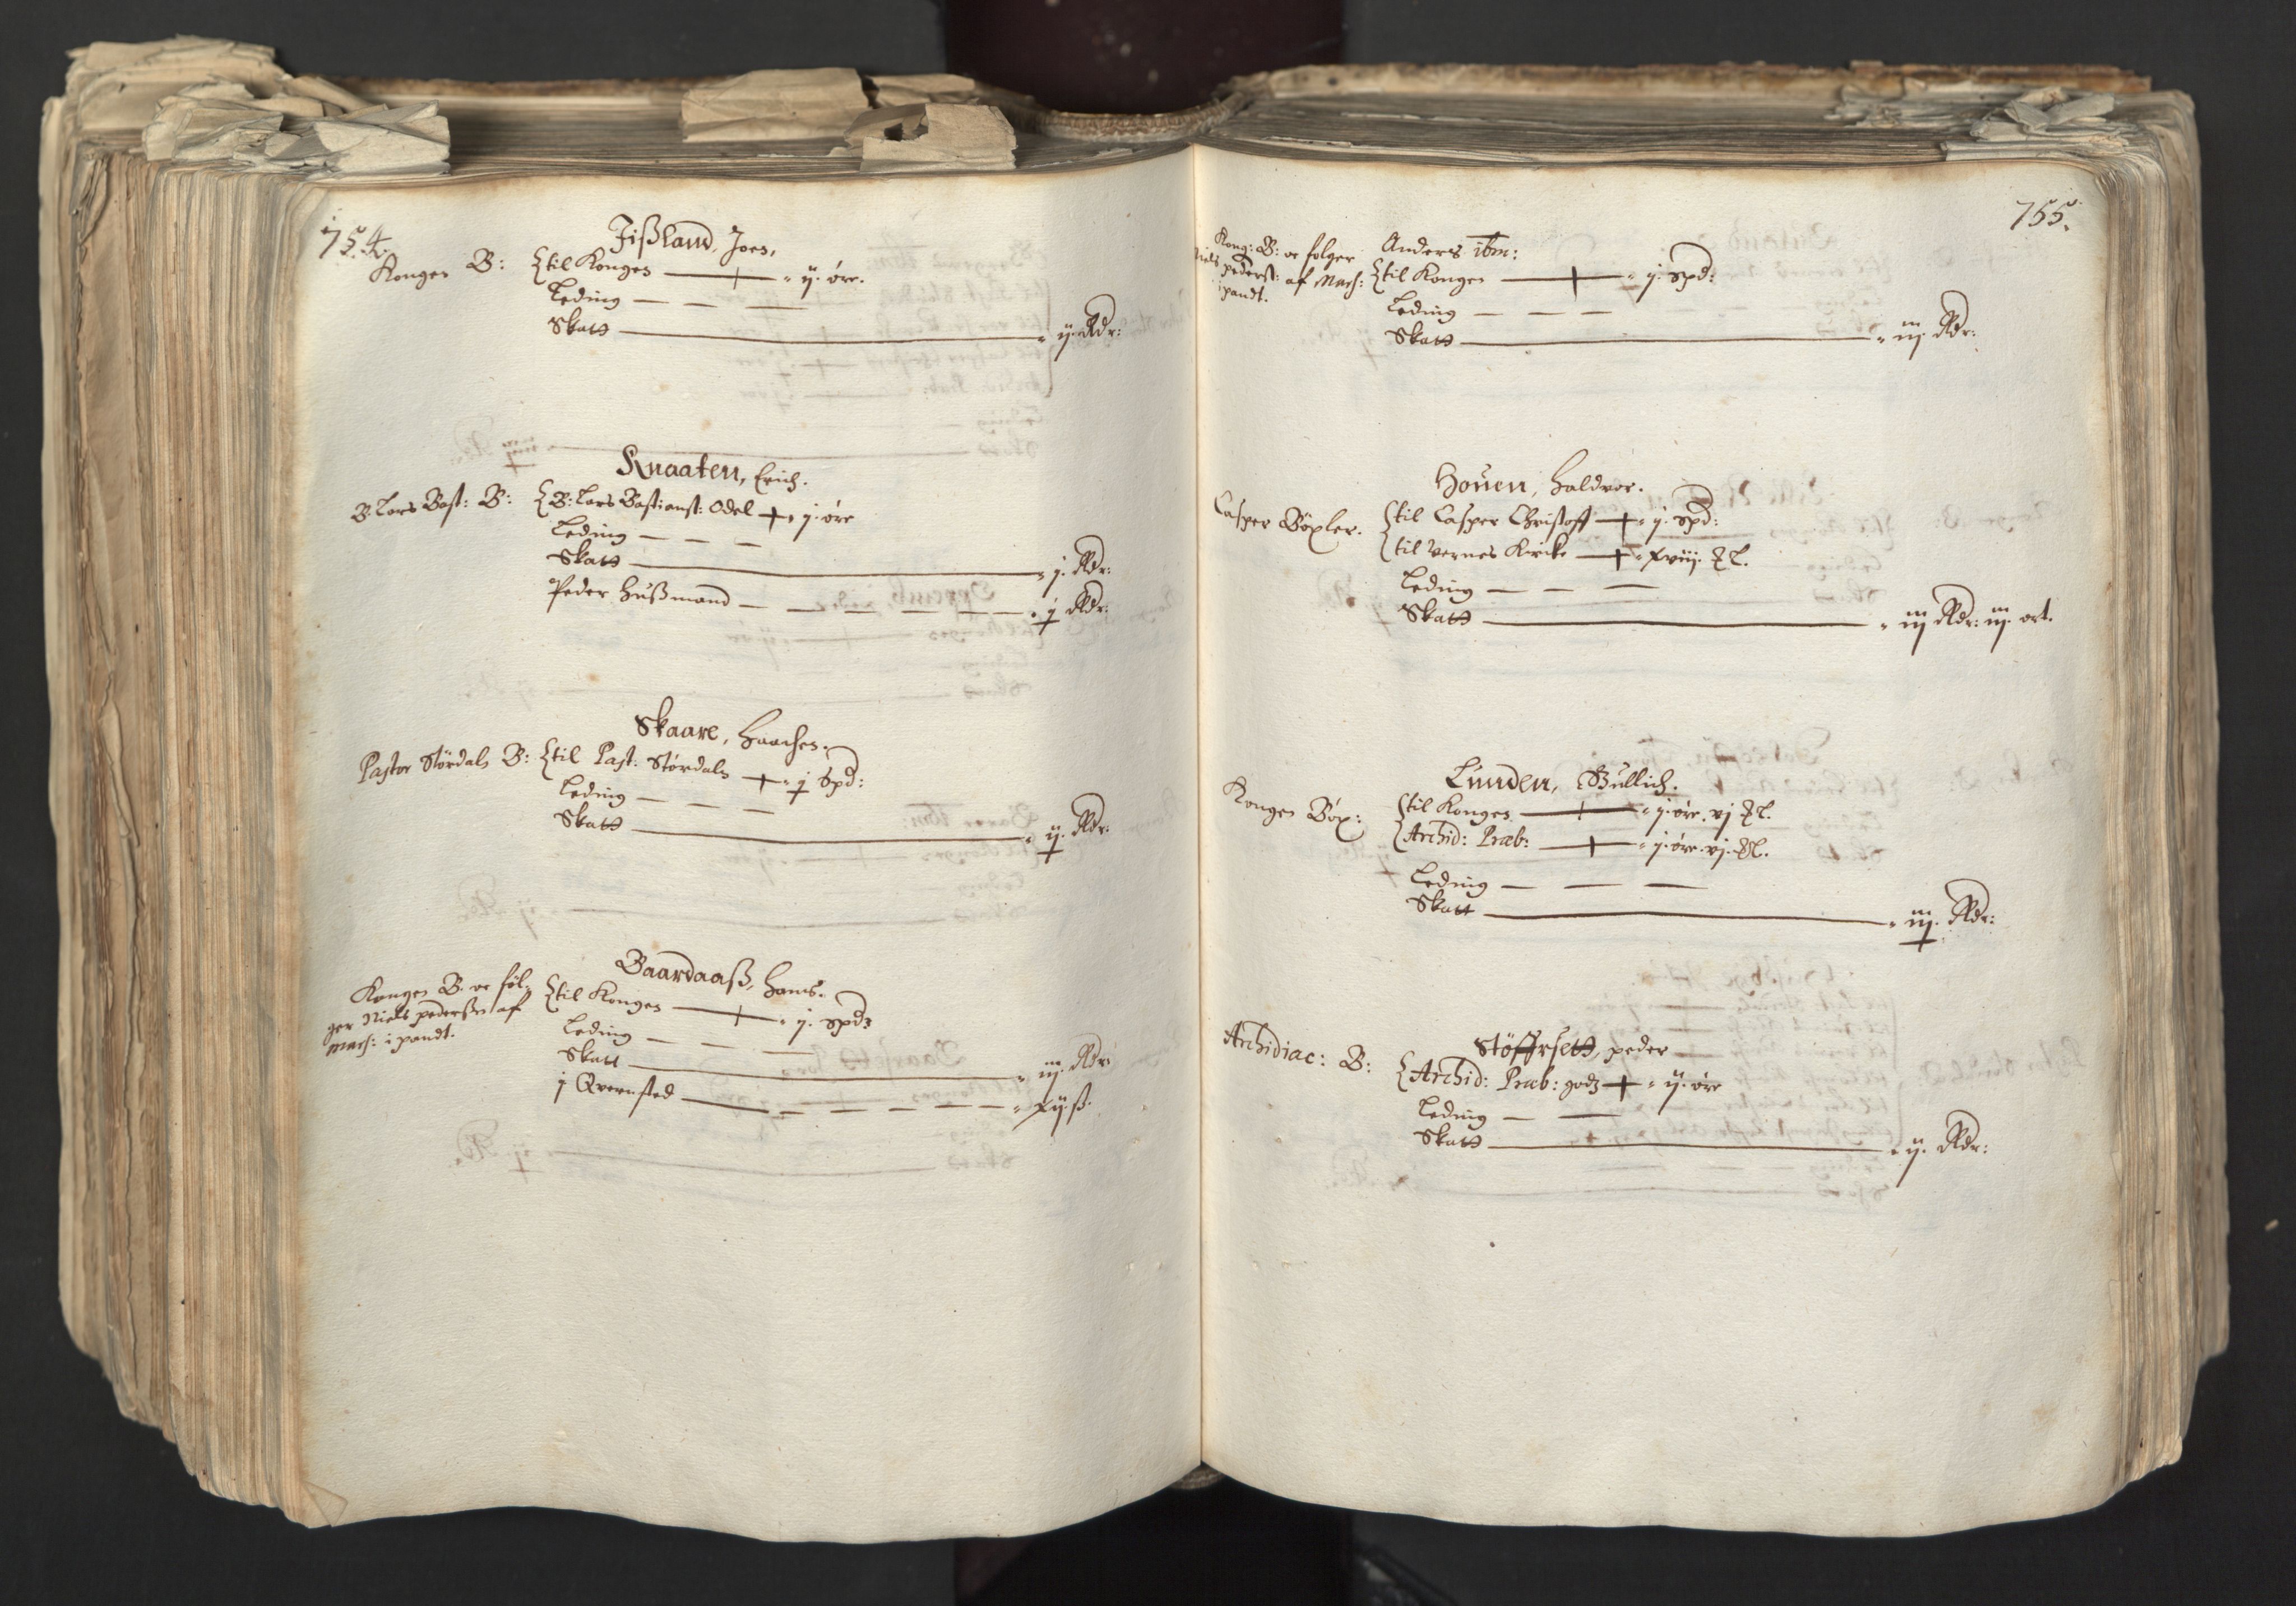 754.
Jißland, Joen,
Kongen B: til Kongen — ij. öre.
Leding — — —
Skatt — ij. Rdr:
Knaaten, Erich.
B: Lars Bast: B: B: Lars Bastianß: Odel — j. öre
Leding — — —
Skatt — j. Rdr:
Peder Hußmand — — — — — — j Rdr:
Skaare, Haachen.
Pastor Stördals B: til Past: Stördals — j Spd:
Leding — — —
Skatt — ij. Rdr:
Baardaaß, Hans.
Kongen B. oc föl-
ger Niels pederßn af
Mach: i pandt.
til Kongen — j. spd:
Leding — — —
Skatt — iij. Rdr:
j Qvernsted — — — — — xij ß.
755.
Kong: B: oc følger
Niels pederß: af Mach:
i pandt.
Anders ibm:
til Kongen — j. spd:
Leding — — —
Skatt — iij. Rdr:
Houen, Haldvor.
Casper Böxler. til Casper Christoff — j. spd:
til Vernes Kircke — xviij. Fl.
Leding — — —
Skatt — iij Rdr: iij. ort.
Lunden, Gullich.
Kongen Böx: til Kongen — j. öre. vj Fl.
Archid: Præb: — j. öre. vj. Fl.
Leding — — —
Skatt — iij. Rdr:
Stöffrsett, peder
Archidiac: B: Archid: Præb: godz — ij. öre
Leding — —
Skatt — ij. Rdr: